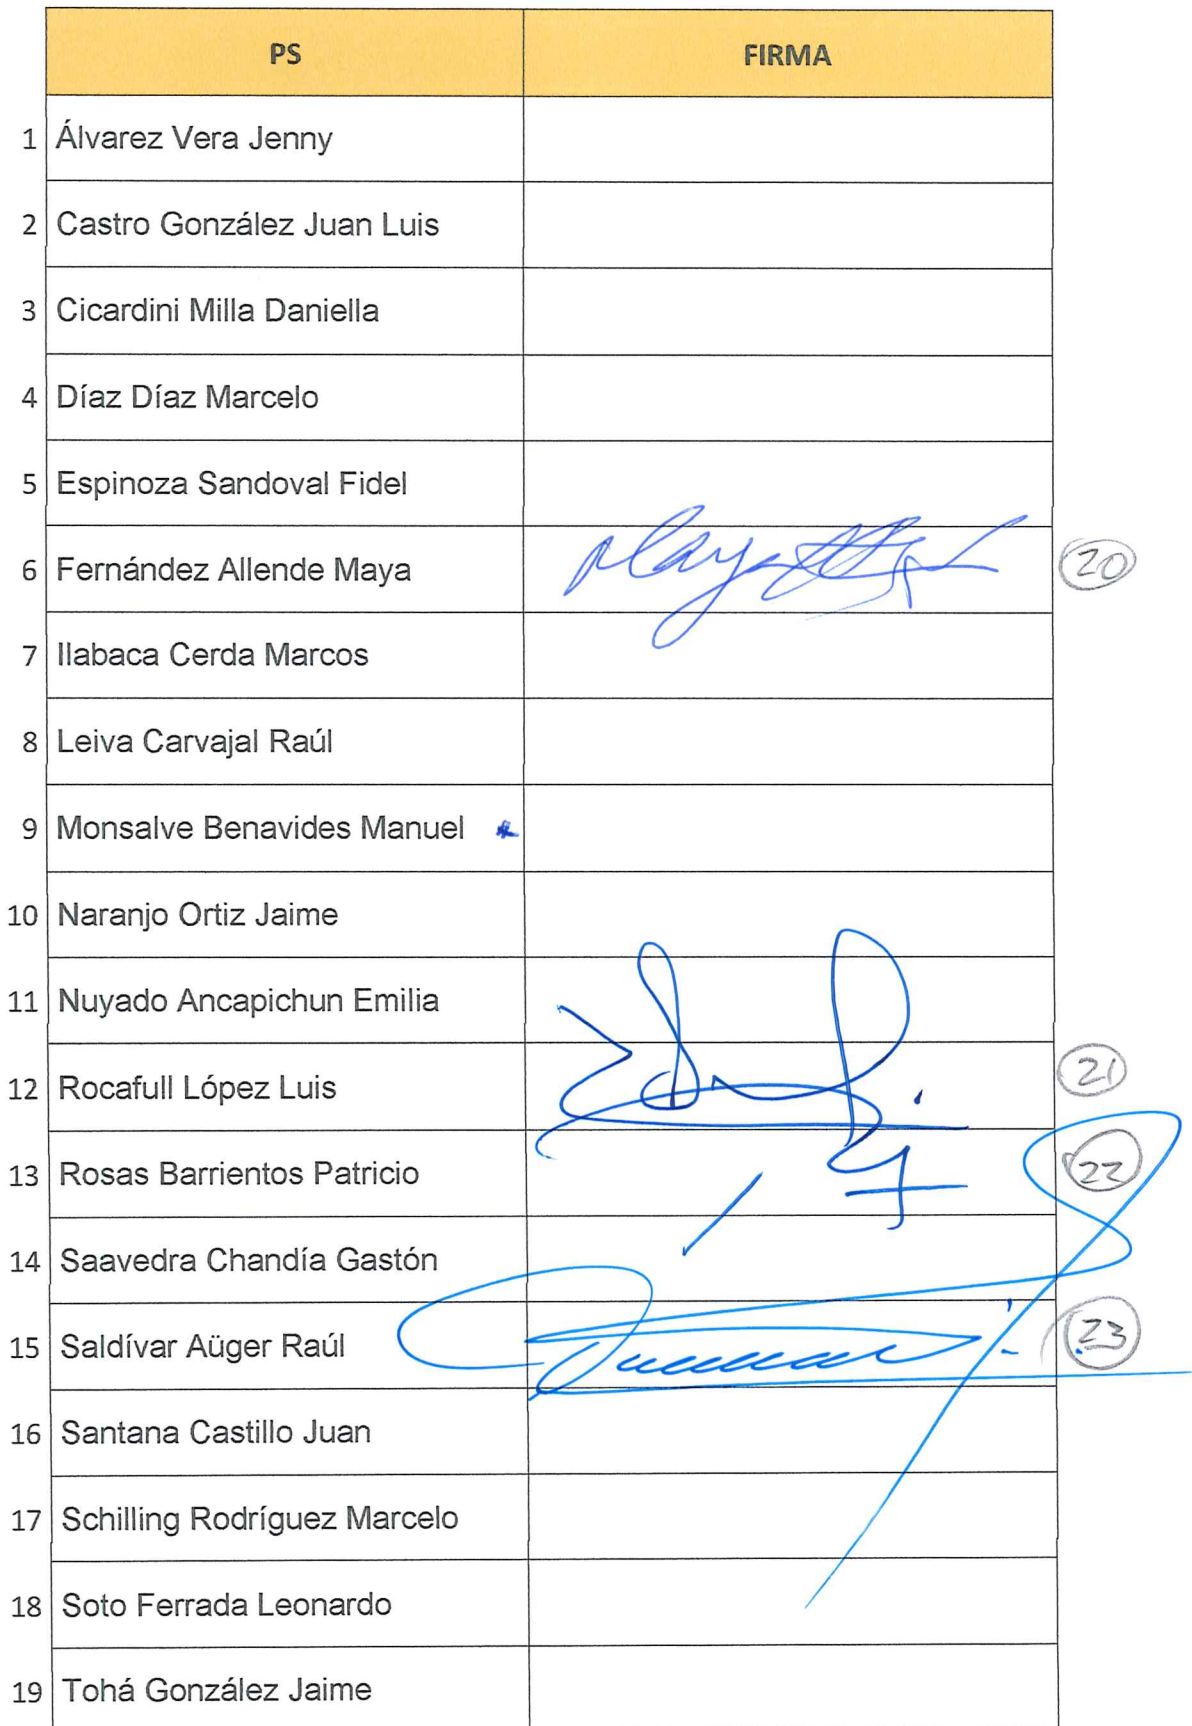 PS FIRMA
1 Álvarez Vera Jenny
2 Castro González Juan Luis
3 Cicardini Milla Daniella
4 Díaz Díaz Marcelo
5 Espinoza Sandoval Fidel
6 Fernández Allende Maya 20
7 Ilabaca Cerda Marcos
8 Leiva Carvajal Raúl
9 Monsalve Benavides Manuel
10 Naranjo Ortiz Jaime
11 Nuyado Ancapichun Emilia
12 Rocafull López Luis 21
13 Rosas Barrientos Patricio 22
14 Saavedra Chandía Gastón
15 Saldívar Aüger Raúl 23
16 Santana Castillo Juan
17 Schilling Rodríguez Marcelo
18 Soto Ferrada Leonardo
19 Tohá González Jaime